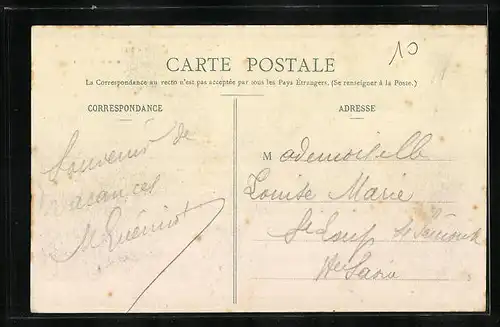 10
CARTE POSTALE
La Correspondance au recto n'est pas acceptée par tous les Pays Étrangers. (Se renseigner à la Poste.)
CORRESPONDANCE
Souvenir de
vacances
M Guéniot
ADRESSE
Mademoiselle
Louise Marie
St Loup s/
Hte Saône